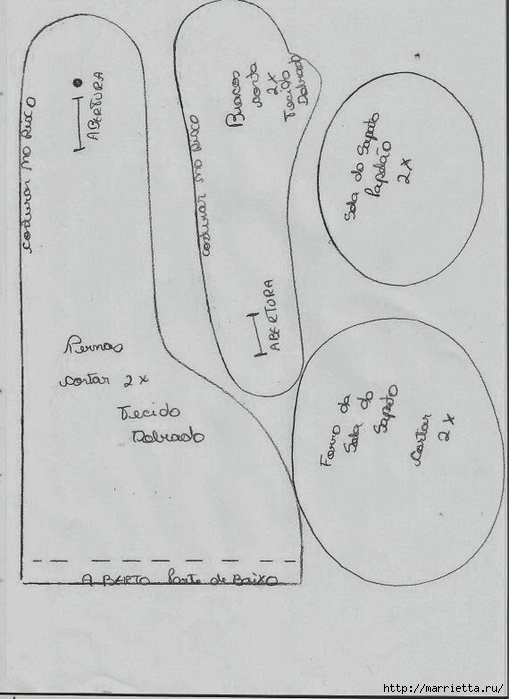 costurar no Risco
ABERTURA
Pernas
cortar 2x
Tecido
Dobrado
ABERTO Parte de Baixo
costurar no Risco
Braços
corta
2x
Tecido
Dobrado
ABERTURA
Sola do Sapato
Papelão
2x
Forro da
Sola do
Sapato
Cortar
2x
http://marrietta.ru/